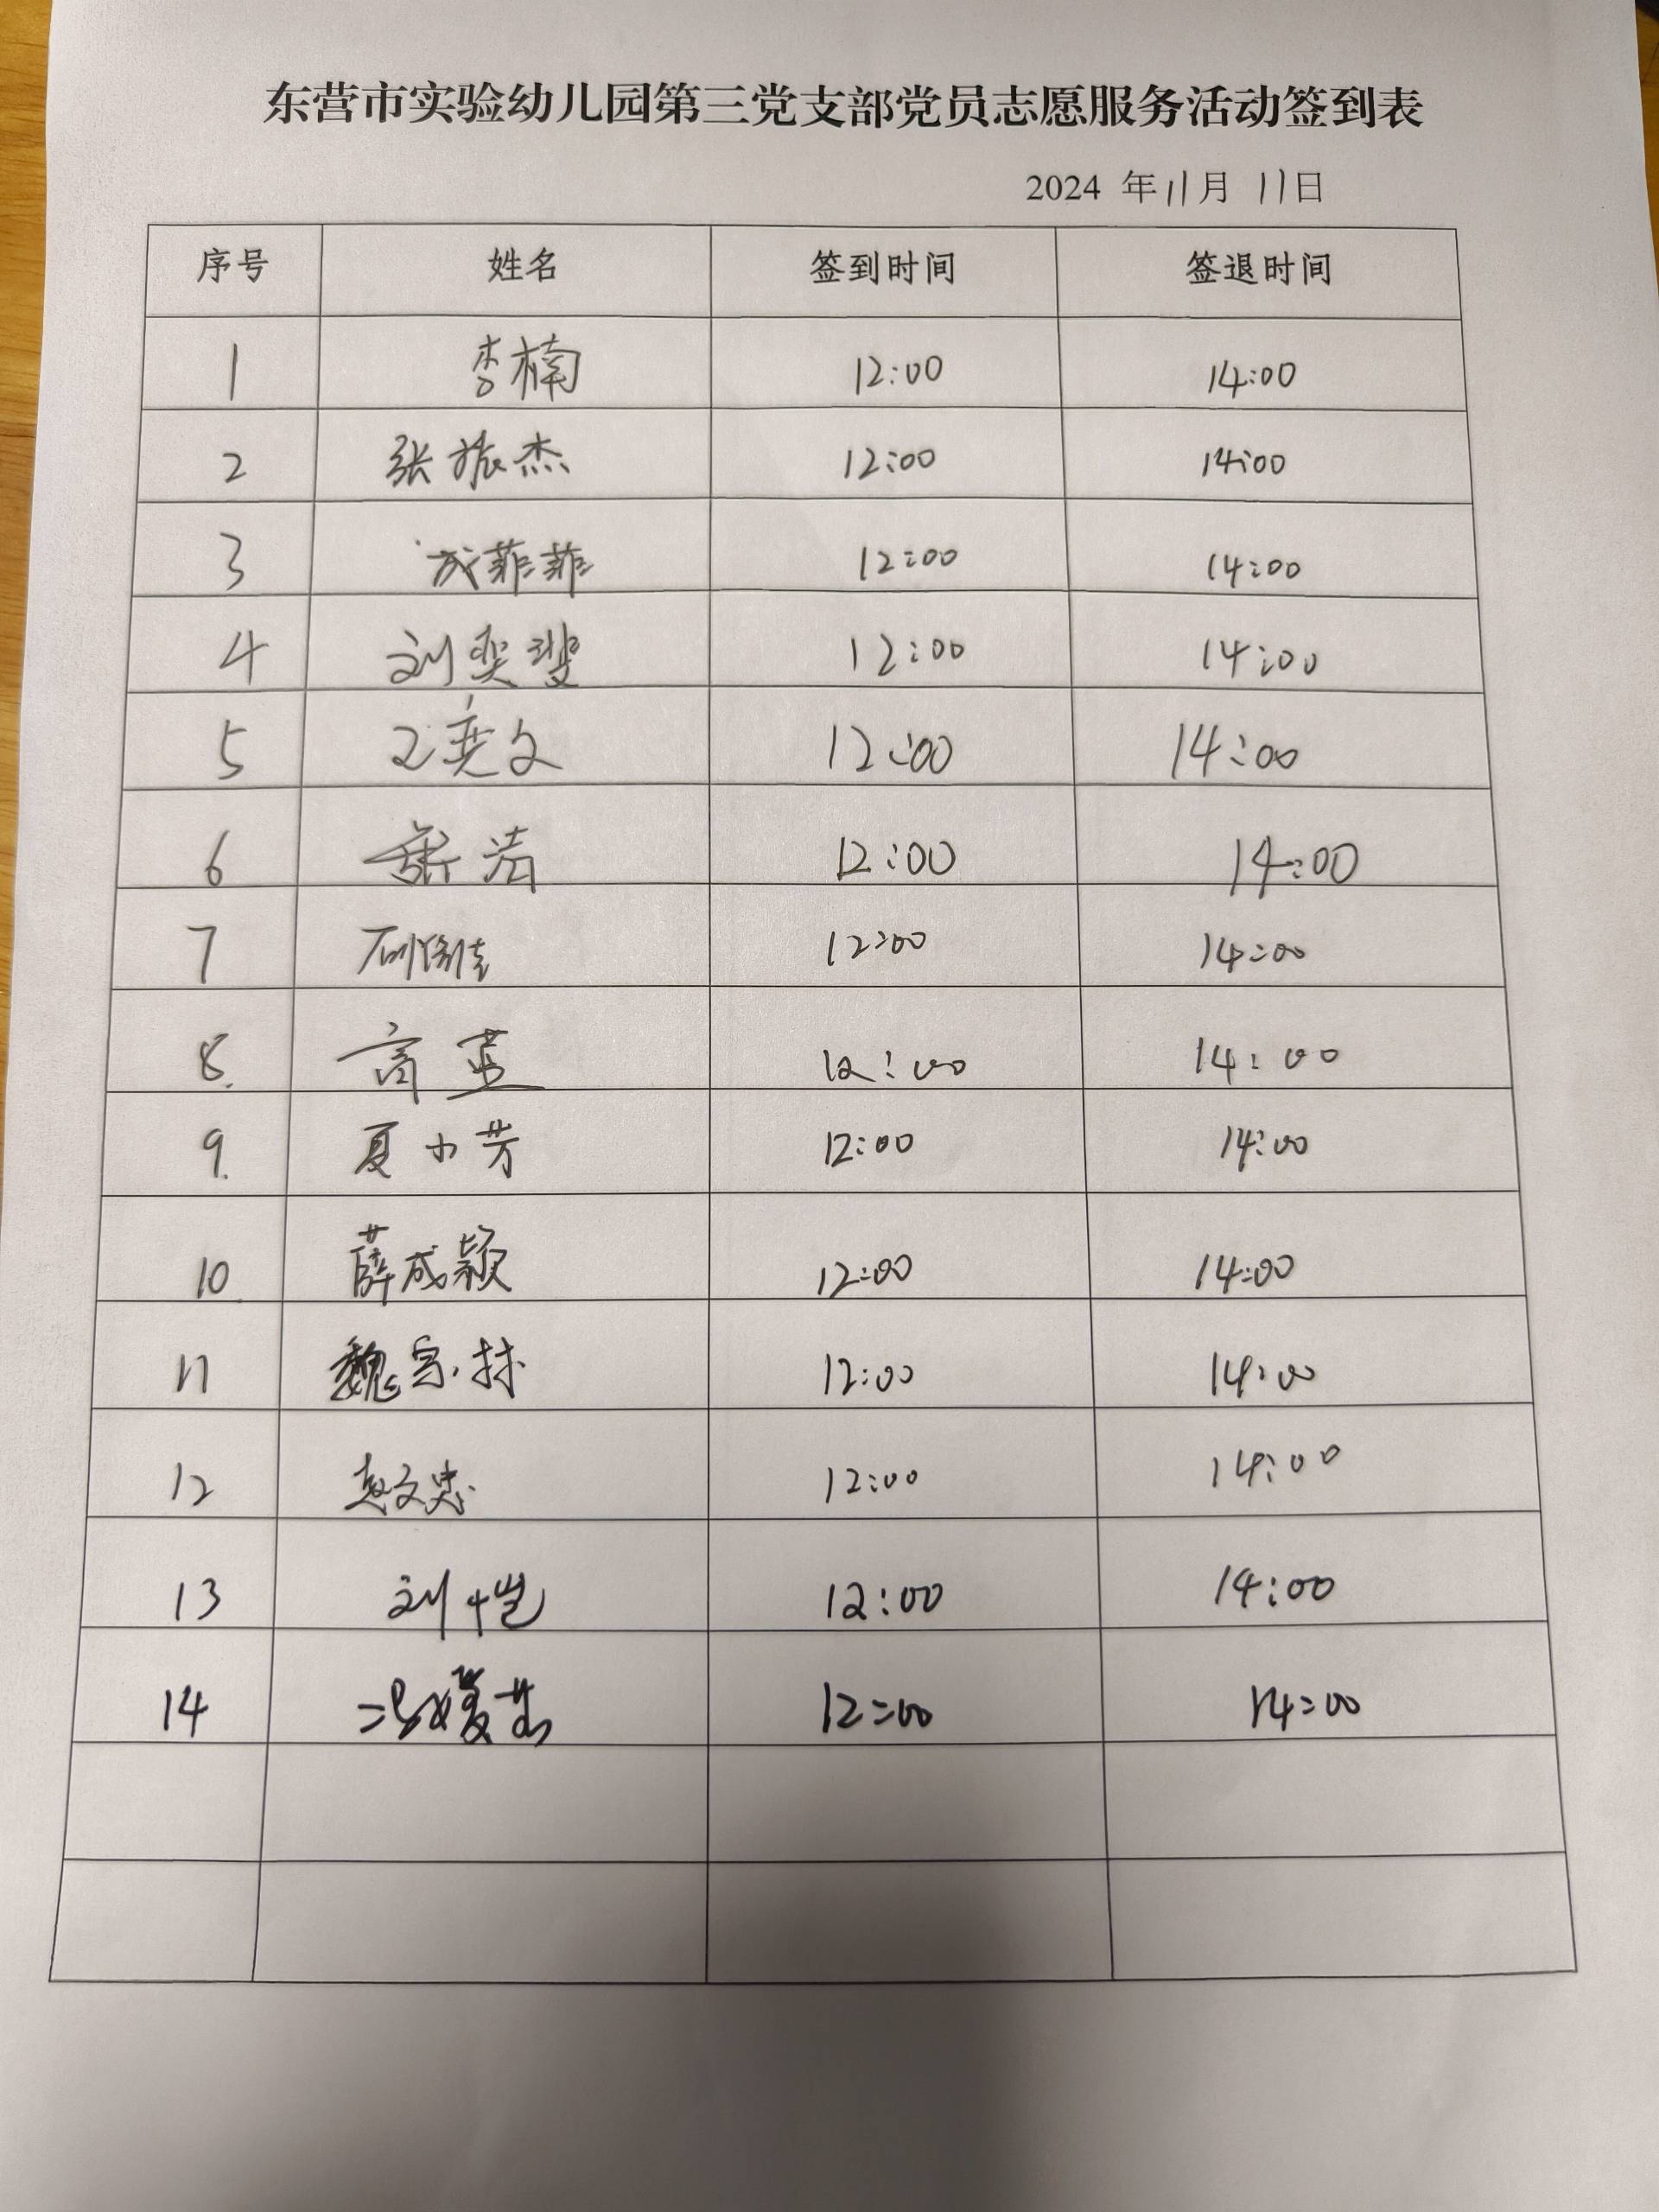 东营市实验幼儿园第三党支部党员志愿服务活动签到表
2024 年 11月 11日
序号 姓名 签到时间 签退时间
1 李楠 12:00 14:00
2 张振杰 12:00 14:00
3 成菲菲 12:00 14:00
4 刘奕斐 12:00 14:00
5 王尧文 12:00 14:00
6 12:00 14:00
7 12:00 14:00
8. 高英 12:00 14:00
9. 夏小芳 12:00 14:00
10. 薛成颖 12:00 14:00
11 魏宗林 12:00 14:00
12 赵文忠 12:00 14:00
13 刘恺 12:00 14:00
14 12:00 14:00